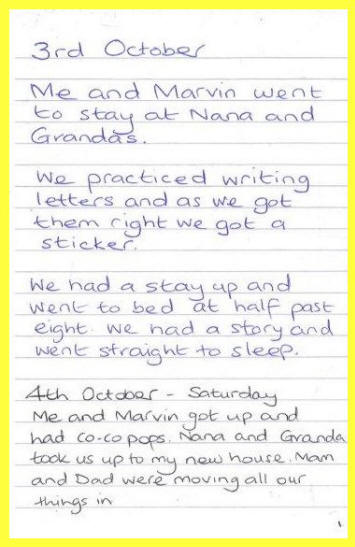 3rd October
Me and Marvin went
to stay at Nana and
Grandas.
We practiced writing
letters and as we got
them right we got a
sticker.
We had a stay up and
went to bed at half past
eight. We had a story and
went straight to sleep.
4th October - Saturday
Me and Marvin got up and
had co-co pops. Nana and Granda
took us up to my new house. Mam
and Dad were moving all our
things in